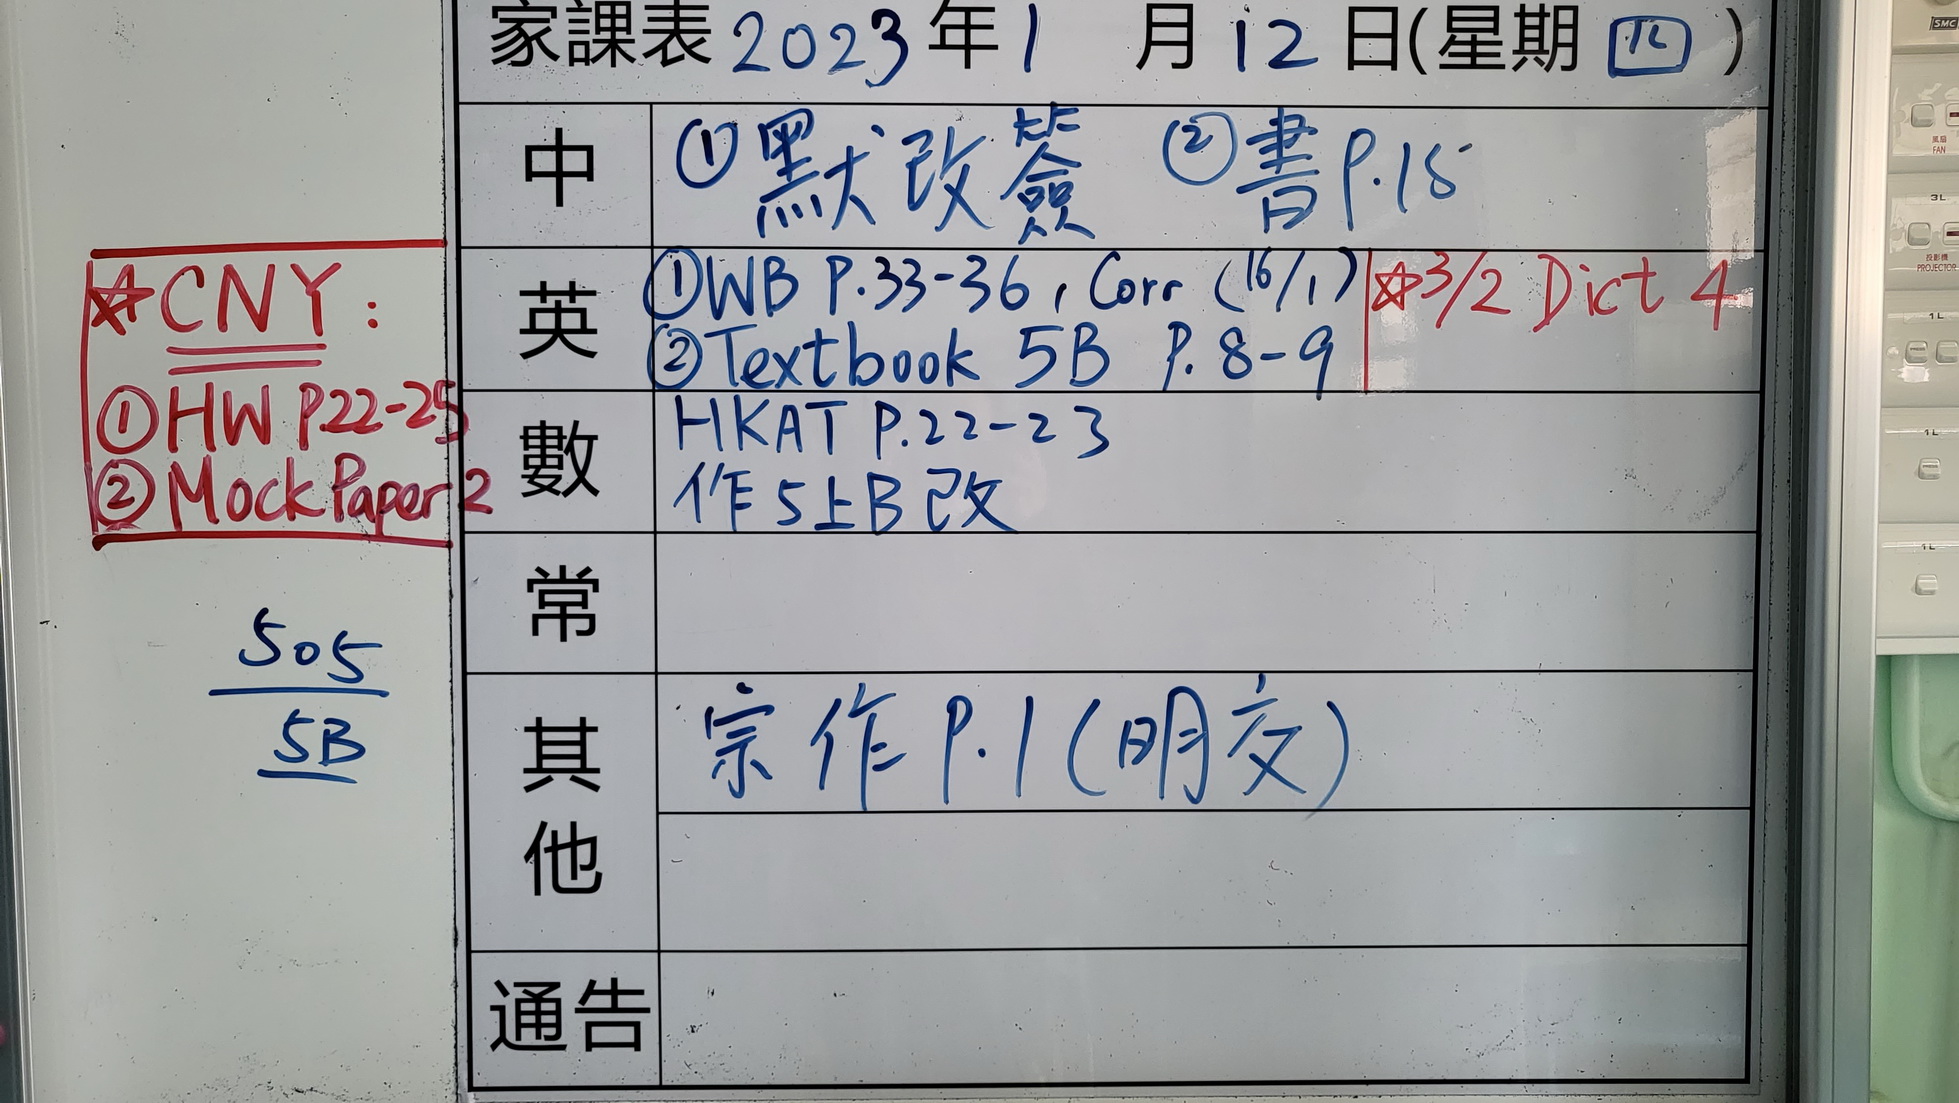 家課表 2023年1月12日(星期四)
中 ①默改簽 ②書P.15
英 ①WB P.33-36, Corr (16/1) ☆3/2 Dict 4
②Textbook 5B P.8-9
數 HKAT P.22-23
作5上B改
常
其他 宗作P.1(明交)
通告
☆CNY:
①HW P.22-25
②Mock Paper 2
505
5B
SMC
風扇
FAN
3L
投影機
PROJECTOR
1L
1L
1L